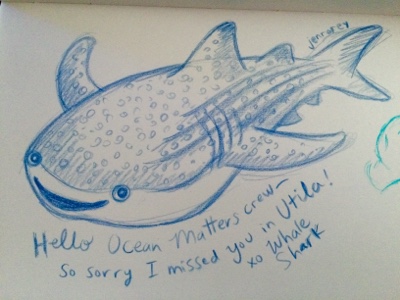 Hello Ocean Matters crew—
So sorry I missed you in Utila!
xo Whale
Shark